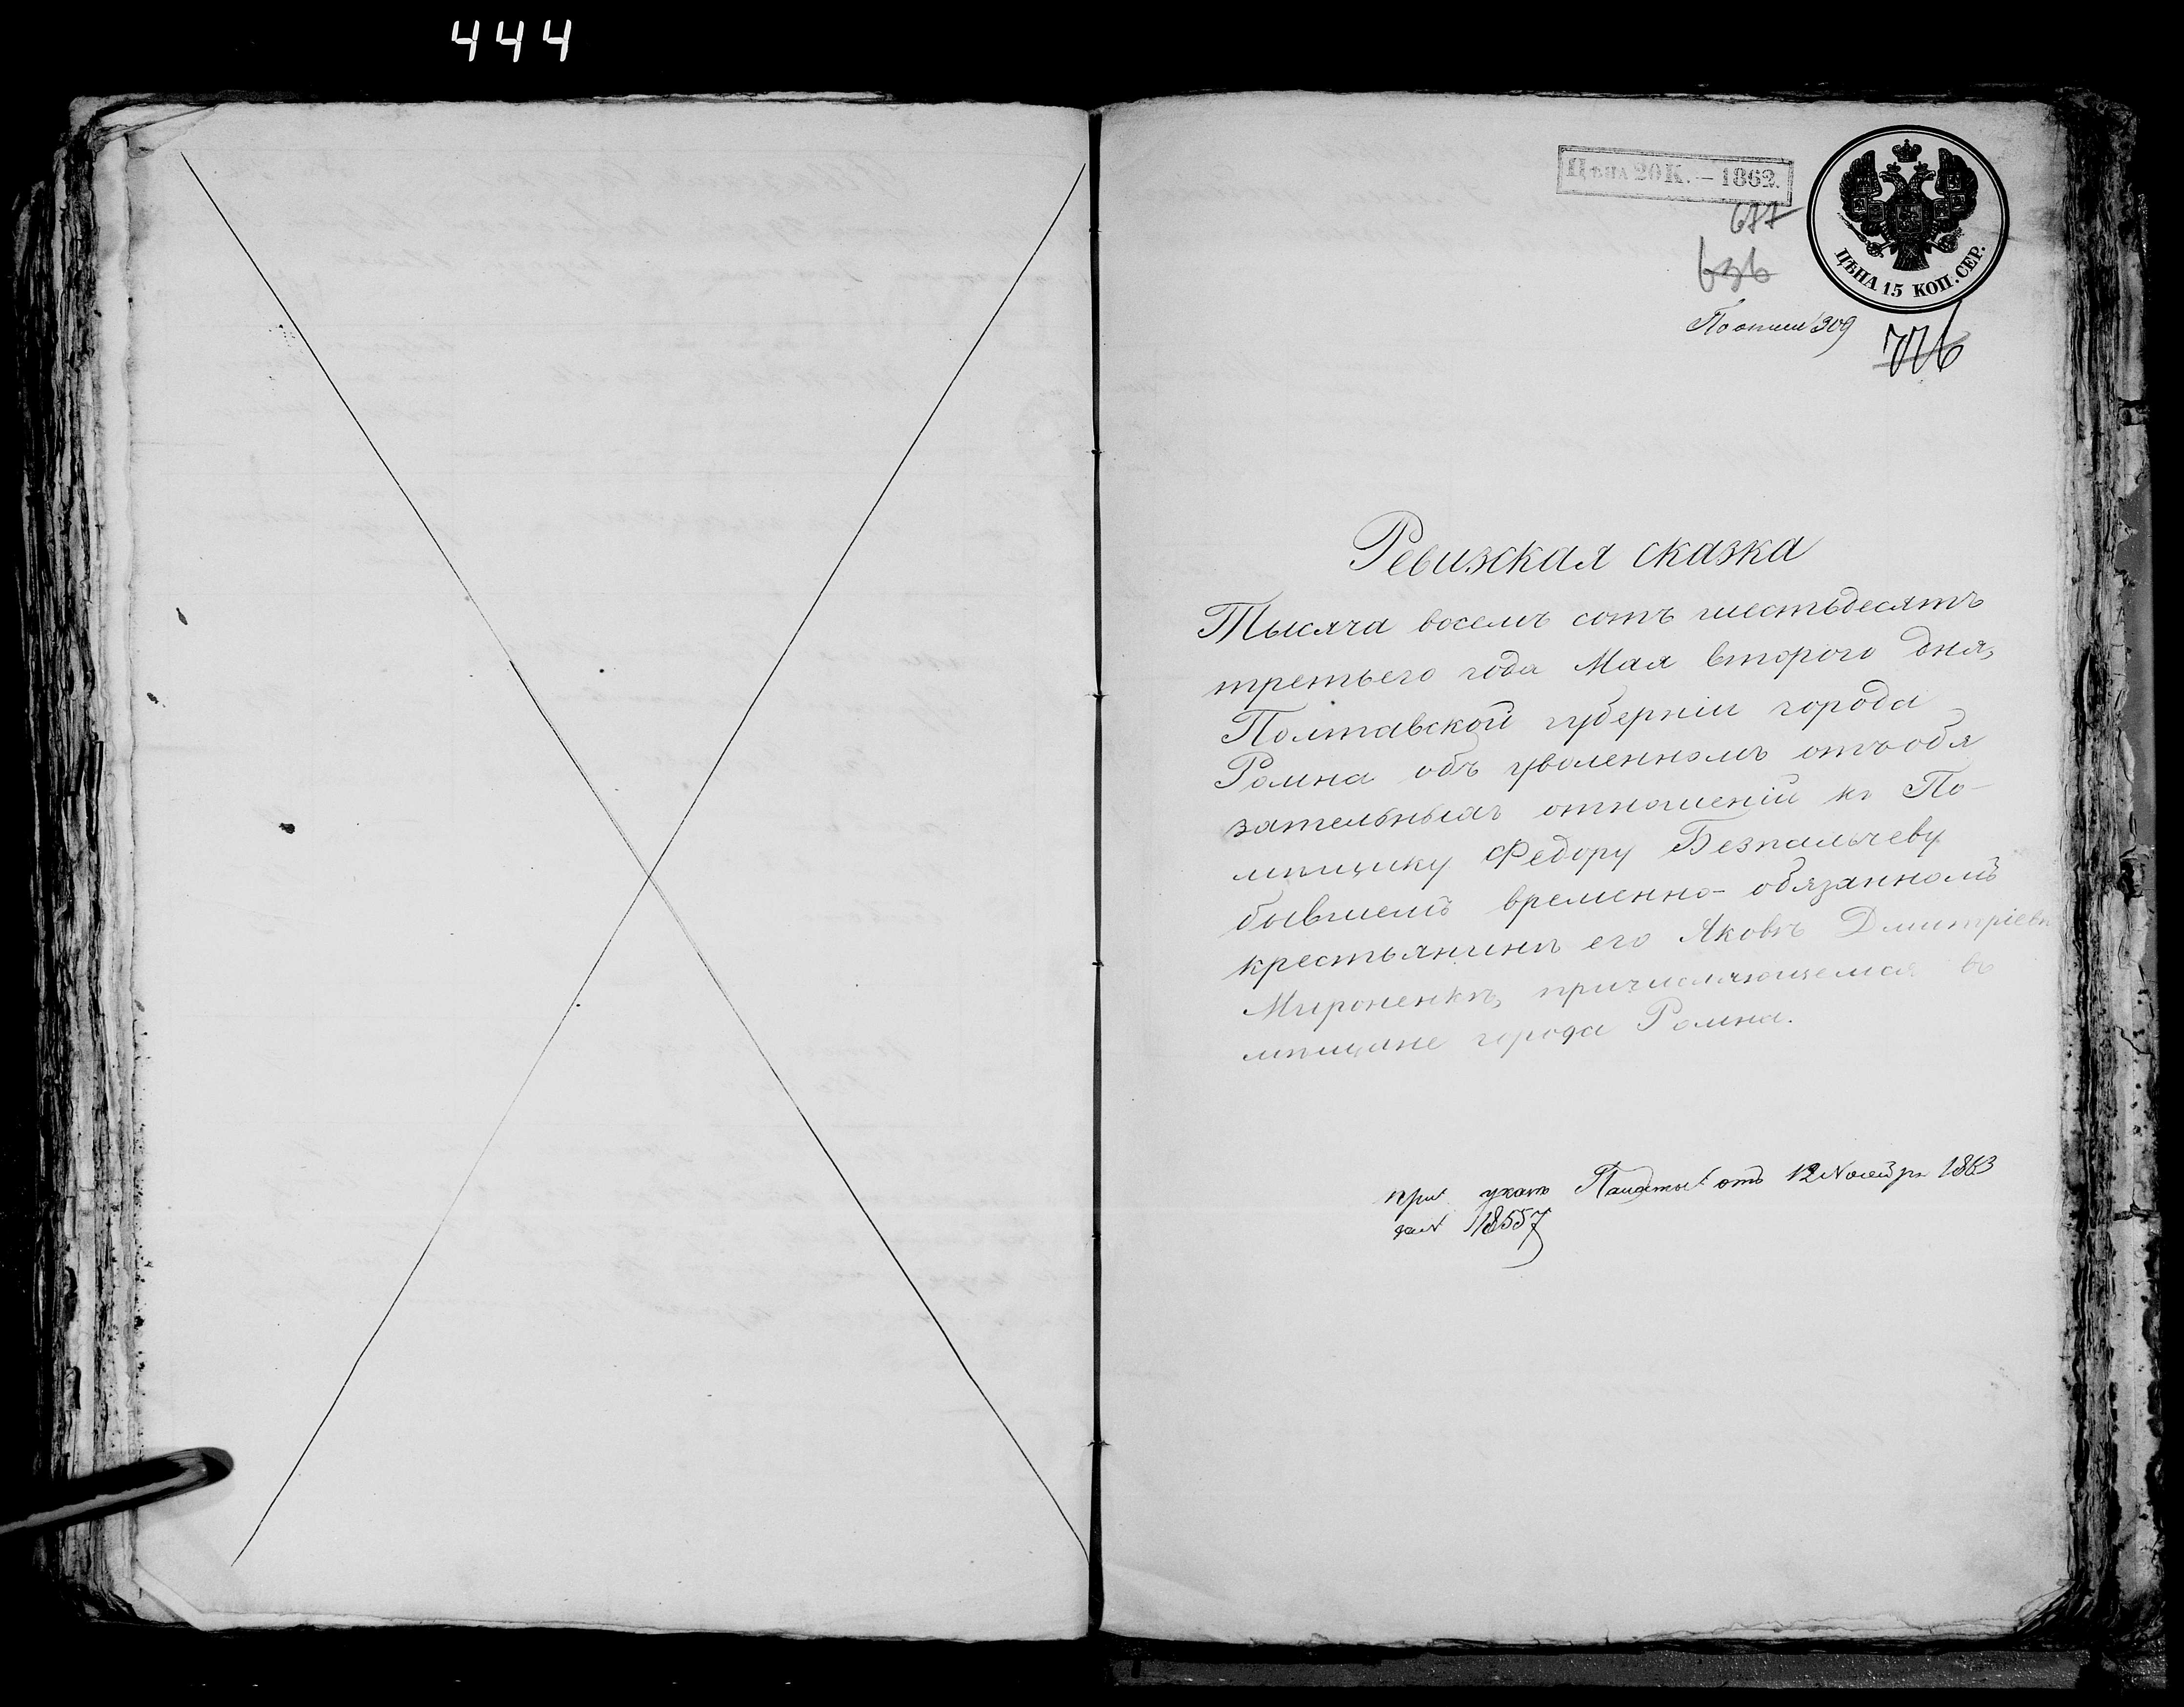 444
Цѣна 20 К. — 1862.
ЦѢНА 15 КОП. СЕР.
677
636
По описи 309
776
Ревизская сказка
Тысяча восемъ сотъ шестьдесятъ
третьего года Мая второго дня,
Полтавской губерніи города
Ромна объ уволенномъ отъ обя
зательныхъ отношеній къ По-
мѣщику Федору Безпальчеву
бывшемъ временно-обязанномъ
крестьянинѣ его Яковѣ Дмитріевѣ
Мироненкѣ, причисляющемся въ
мѣщане города Ромна.
при указѣ Палаты отъ 12 Ноября 1863
за № 18557